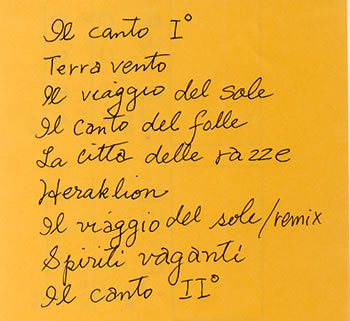 Il canto I°
Terra vento
Il viaggio del sole
Il canto del folle
La città delle razze
Heraklion
Il viaggio del sole/remix
Spiriti vaganti
Il canto II°